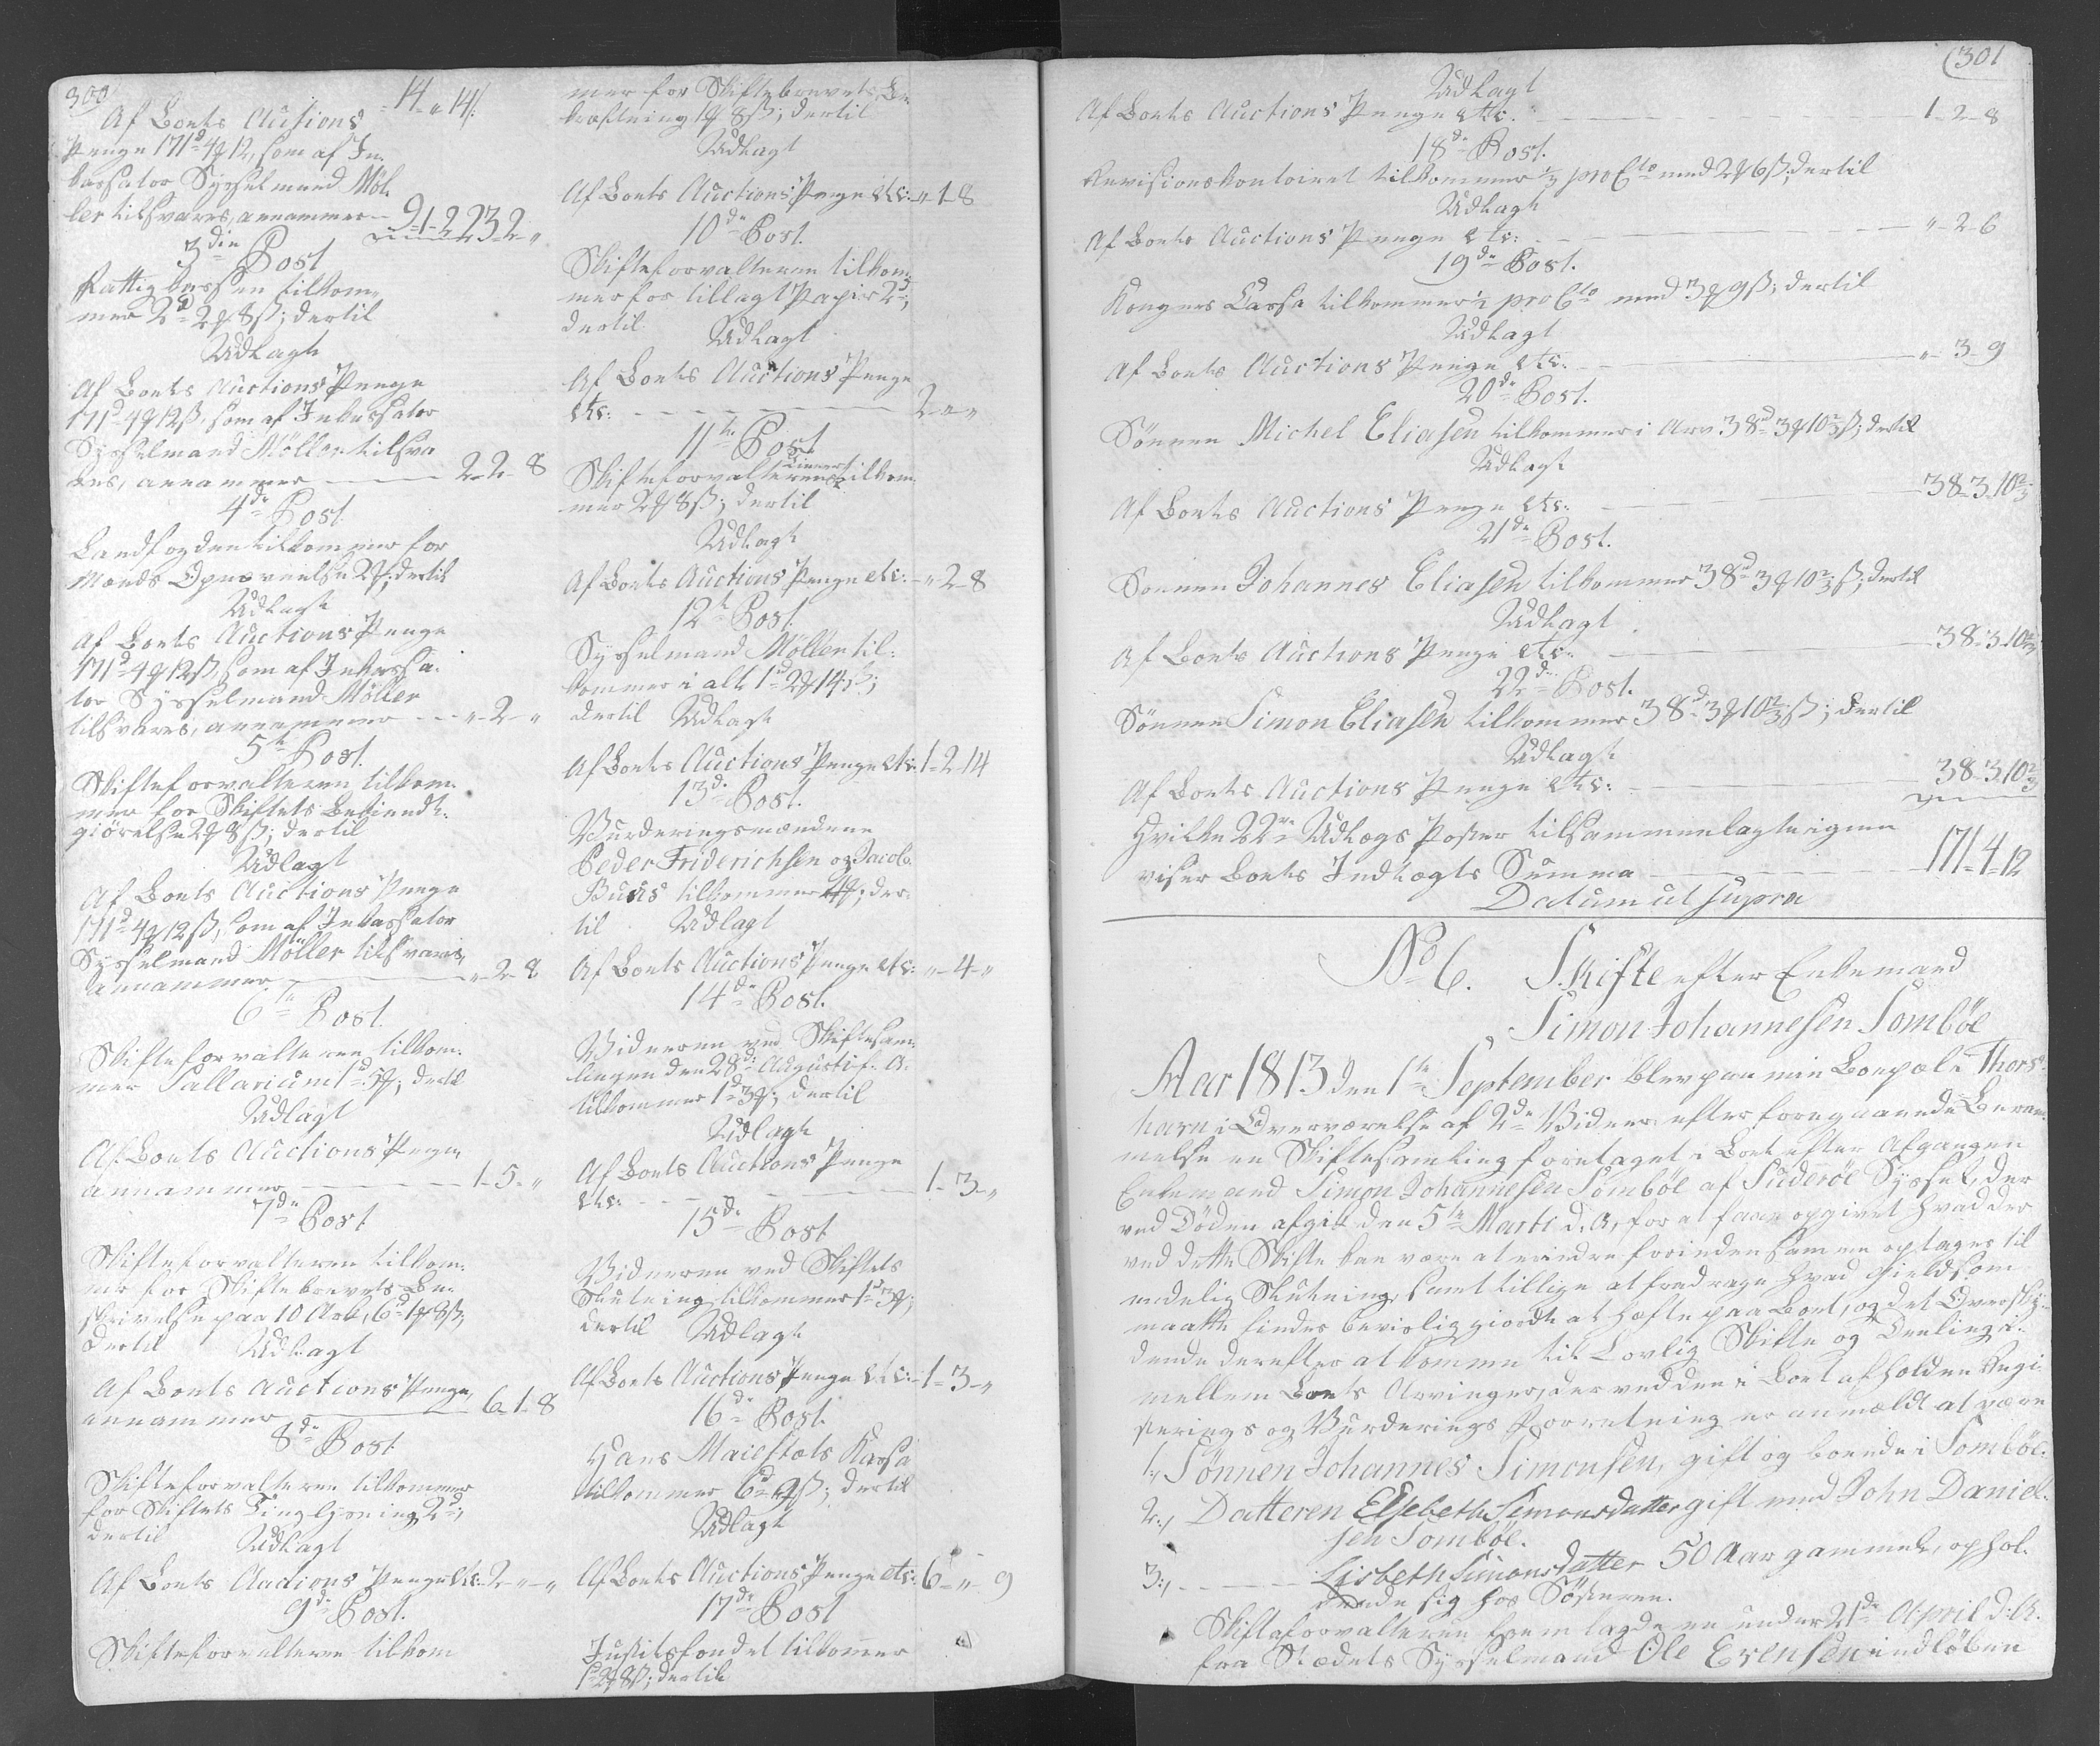 300
14 - " 14
Af Boets Auctions
Penge 171d 4 12, som af In-
cassator Sysselmand Møl-
ler tilsvares, annammer - 9-1-2 23-2-"
3die Post
Fattig Cassen tilkom-
mer 2d 2 8ß; dertil
Udlagt
Af Boets Auctions Penge
171d 4 12ß, som af Incassator
Sysselmand Möller tilsva-
res, annammer - 2-2-8
4de Post.
Landfogden tilkommer for
Mænds Opnævnelse 2; dertil
Udlagt
Af Boets Auctions Penge
171d 4 12ß, som af Incassa-
tor Sysselmand Möller
tilsvares, annammer - "-2-"
5te Post.
Skifteforvalteren tilkom-
mer for Skiftets Bekiendt-
giörelse 2 8ß; dertil
Udlagt
Af Boets Auctions Penge
171d 4 12ß, som af Incassator
Sysselmand Möller tilsvares,
annammer - "-2-8
6te Post.
Skifteforvalteren tilkom-
mer Sallarium 1d 5; dertil
Udlagt
Af Boets Auctions Penge
annammer - 1-5-"
7de Post
Skifteforvalteren tilkom-
mer for Skiftebrevets Be-
skrivelse paa 10 Ark, 6d 1 8ß,
dertil Udlagt
Af Boets Auctions Penge,
annammer - 6-1-8
8de Post
Skifteforvalteren tilkommer
for Skiftets Tinglysning 2d;
dertil Udlagt
Af Boets Auctions Penge etc: 2-"-"
9de Post.
Skifteforvalteren tilkom
mer for Skiftebrevets Be-
kræftning 1 8ß; dertil
Udlagt
Af Boets Auctions Penge etc: - " 1-8
10de Post.
Skifteforvalteren tilkom-
mer for tillagt Papir 2d;
dertil Udlagt
Af Boets Auctions Penge
etc: - 2-"-"
11te Post
Skifteforvalterens tilkom-
mer 2 8ß; dertil
Udlagt
Af Boets Auctions Penge etc: - " 2-8
12te Post.
Sysselmand Möller til-
kommer i alt 1d 2 14ß;
dertil Udlagt
Af Boets Auctions Penge etc: 1-2-14
13de Post.
Vurderingsmændene
Peder Friderichsen og Jacob
Buus tilkommer 4; der-
til Udlagt
Af Boets Auctions Penge etc: "-4-"
14de Post.
Vidnerne ved Skiftesam-
lingen den 28de Augusti f. A.
tilkommer 1d 3; dertil
Udlagt
Af Boets Auctions Penge
etc: - 1-3-"
15de Post
Vidnerne ved Skiftets
Slutning tilkommer 1d 3;
dertil Udlagt
Af Boets Auctions Penge etc: - 1-3-"
16de Post.
Hans Maiestæts Kassa
tilkommer 6d 9ß; dertil
Udlagt
Af Boets Auctions Penge etc: 6-"-9
17de Post
Justitsfondet tilkommer
1d 2 8ß; dertil
301
Udlagt
Af Boets Auctions Penge etc: - 1-2-8
18de Post.
Revisionskontoiret tilkommer pro Cto med 2 6ß; dertil
Udlagt
Af Boets Auctions Penge etc: - "-2-6
19de Post.
Kongens Cassa tilkommer pro Cto med 3 9ß; dertil
Udlagt
Af Boets Auctions Penge etc. - "-3-9
20de Post.
Sönnen Michel Eliasen tilkommer i Arv 38d 3 10 2/3ß; dertil
Udlagt
Af Boets Auctions Penge etc: - 38-3-10 2/3
21de Post.
Sönnen Johannes Eliasen tilkommer 38d 3 10 2/3ß; dertil
Udlagt
Af Boets Auctions Penge etc: - 38-3-10 2/3
22de Post.
Sönnen Simon Eliasen tilkommer 38d 3 10 2/3ß; dertil
Udlagt
Af Boets Auctions Penge etc: - 38-3-10 2/3
Hvilke 22de Udlægs Poster tilsammenlagte igien
viser Boets Indlægts Summa - 171-4-12
Datum ut supra
No 6. Skifte efter Enkemand
Simon Johannesen Sombøe
Aar 1813 den 1te September blev paa min Boepæl i Thors-
havn i Overværelse af 2de Vidner efter foregaaende Beram-
melse en Skiftesamling foretaget i Boet efter Afgangen
Enkemand Simon Johannesen Sombøe af Suderøe Syssel, der
ved Döden afgik den 5te Marti d. A, for at faae opgivet hvad der
ved dette Skifte kan være at erindre forinden samme optages til
endelig Slutning, samt tillige at fradrage hvad Gield som
maatte findes beviislig giordt at hæfte paa Boet, og det Overskÿ-
dende derefter at komme til Lovlig Skifte og Deeling i-
mellem Boets Arvinger, der ved den i Boet afholdne Regi-
sterings og Vurderings Forretning er anmeldt at være
1., Sönnen Johannes Simonsen, gift og boende i Sombøe.
2., Datteren Elsebeth Simonsdatter gift med John Daniel-
sen Sombøe.
3., - Lisbeth Simonsdatter 50 Aar gammel, ophol-
dende sig hos Söstren.
Skifteforvalteren fremlagde en under 21de April d: A.
fra Stædets Sysselmand Ole Evensen indløben